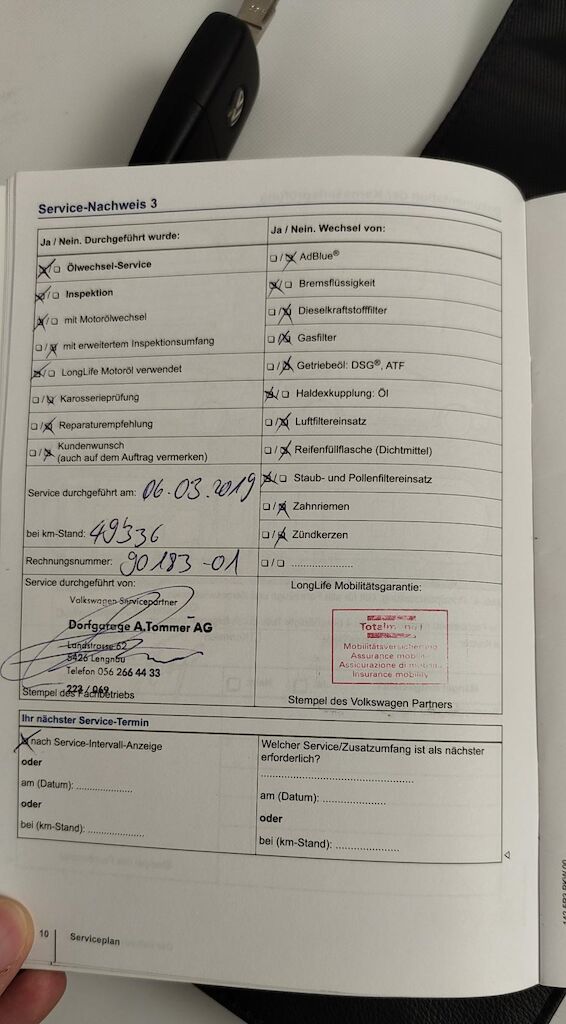 Service-Nachweis 3
Ja / Nein. Durchgeführt wurde:
Ölwechsel-Service
Inspektion
mit Motorölwechsel
mit erweitertem Inspektionsumfang
LongLife Motoröl verwendet
Karosserieprüfung
Reparaturempfehlung
Kundenwunsch
(auch auf dem Auftrag vermerken)
Service durchgeführt am: 06.03.2019
bei km-Stand: 49336
Rechnungsnummer: 90183-01
Ja / Nein. Wechsel von:
AdBlue®
Bremsflüssigkeit
Dieselkraftstofffilter
Gasfilter
Getriebeöl: DSG®, ATF
Haldexkupplung: Öl
Luftfiltereinsatz
Reifenfüllflasche (Dichtmittel)
Staub- und Pollenfiltereinsatz
Zahnriemen
Zündkerzen
....................
Service durchgeführt von:
Volkswagen Servicepartner
Dorfgarage A.Tommer AG
Landstrasse 62
5426 Lengnau
Telefon 056 266 44 33
223 / 069
Stempel des Fachbetriebs
LongLife Mobilitätsgarantie:
Mobilitätsversicherung
Assurance mobilité
Assicurazione di mobilità
Insurance mobility
Stempel des Volkswagen Partners
Ihr nächster Service-Termin
nach Service-Intervall-Anzeige
oder
am (Datum): ..................
oder
bei (km-Stand): ..................
Welcher Service/Zusatzumfang ist als nächster
erforderlich?
................................................
am (Datum): .............................
oder
bei (km-Stand): ....................
10
Serviceplan